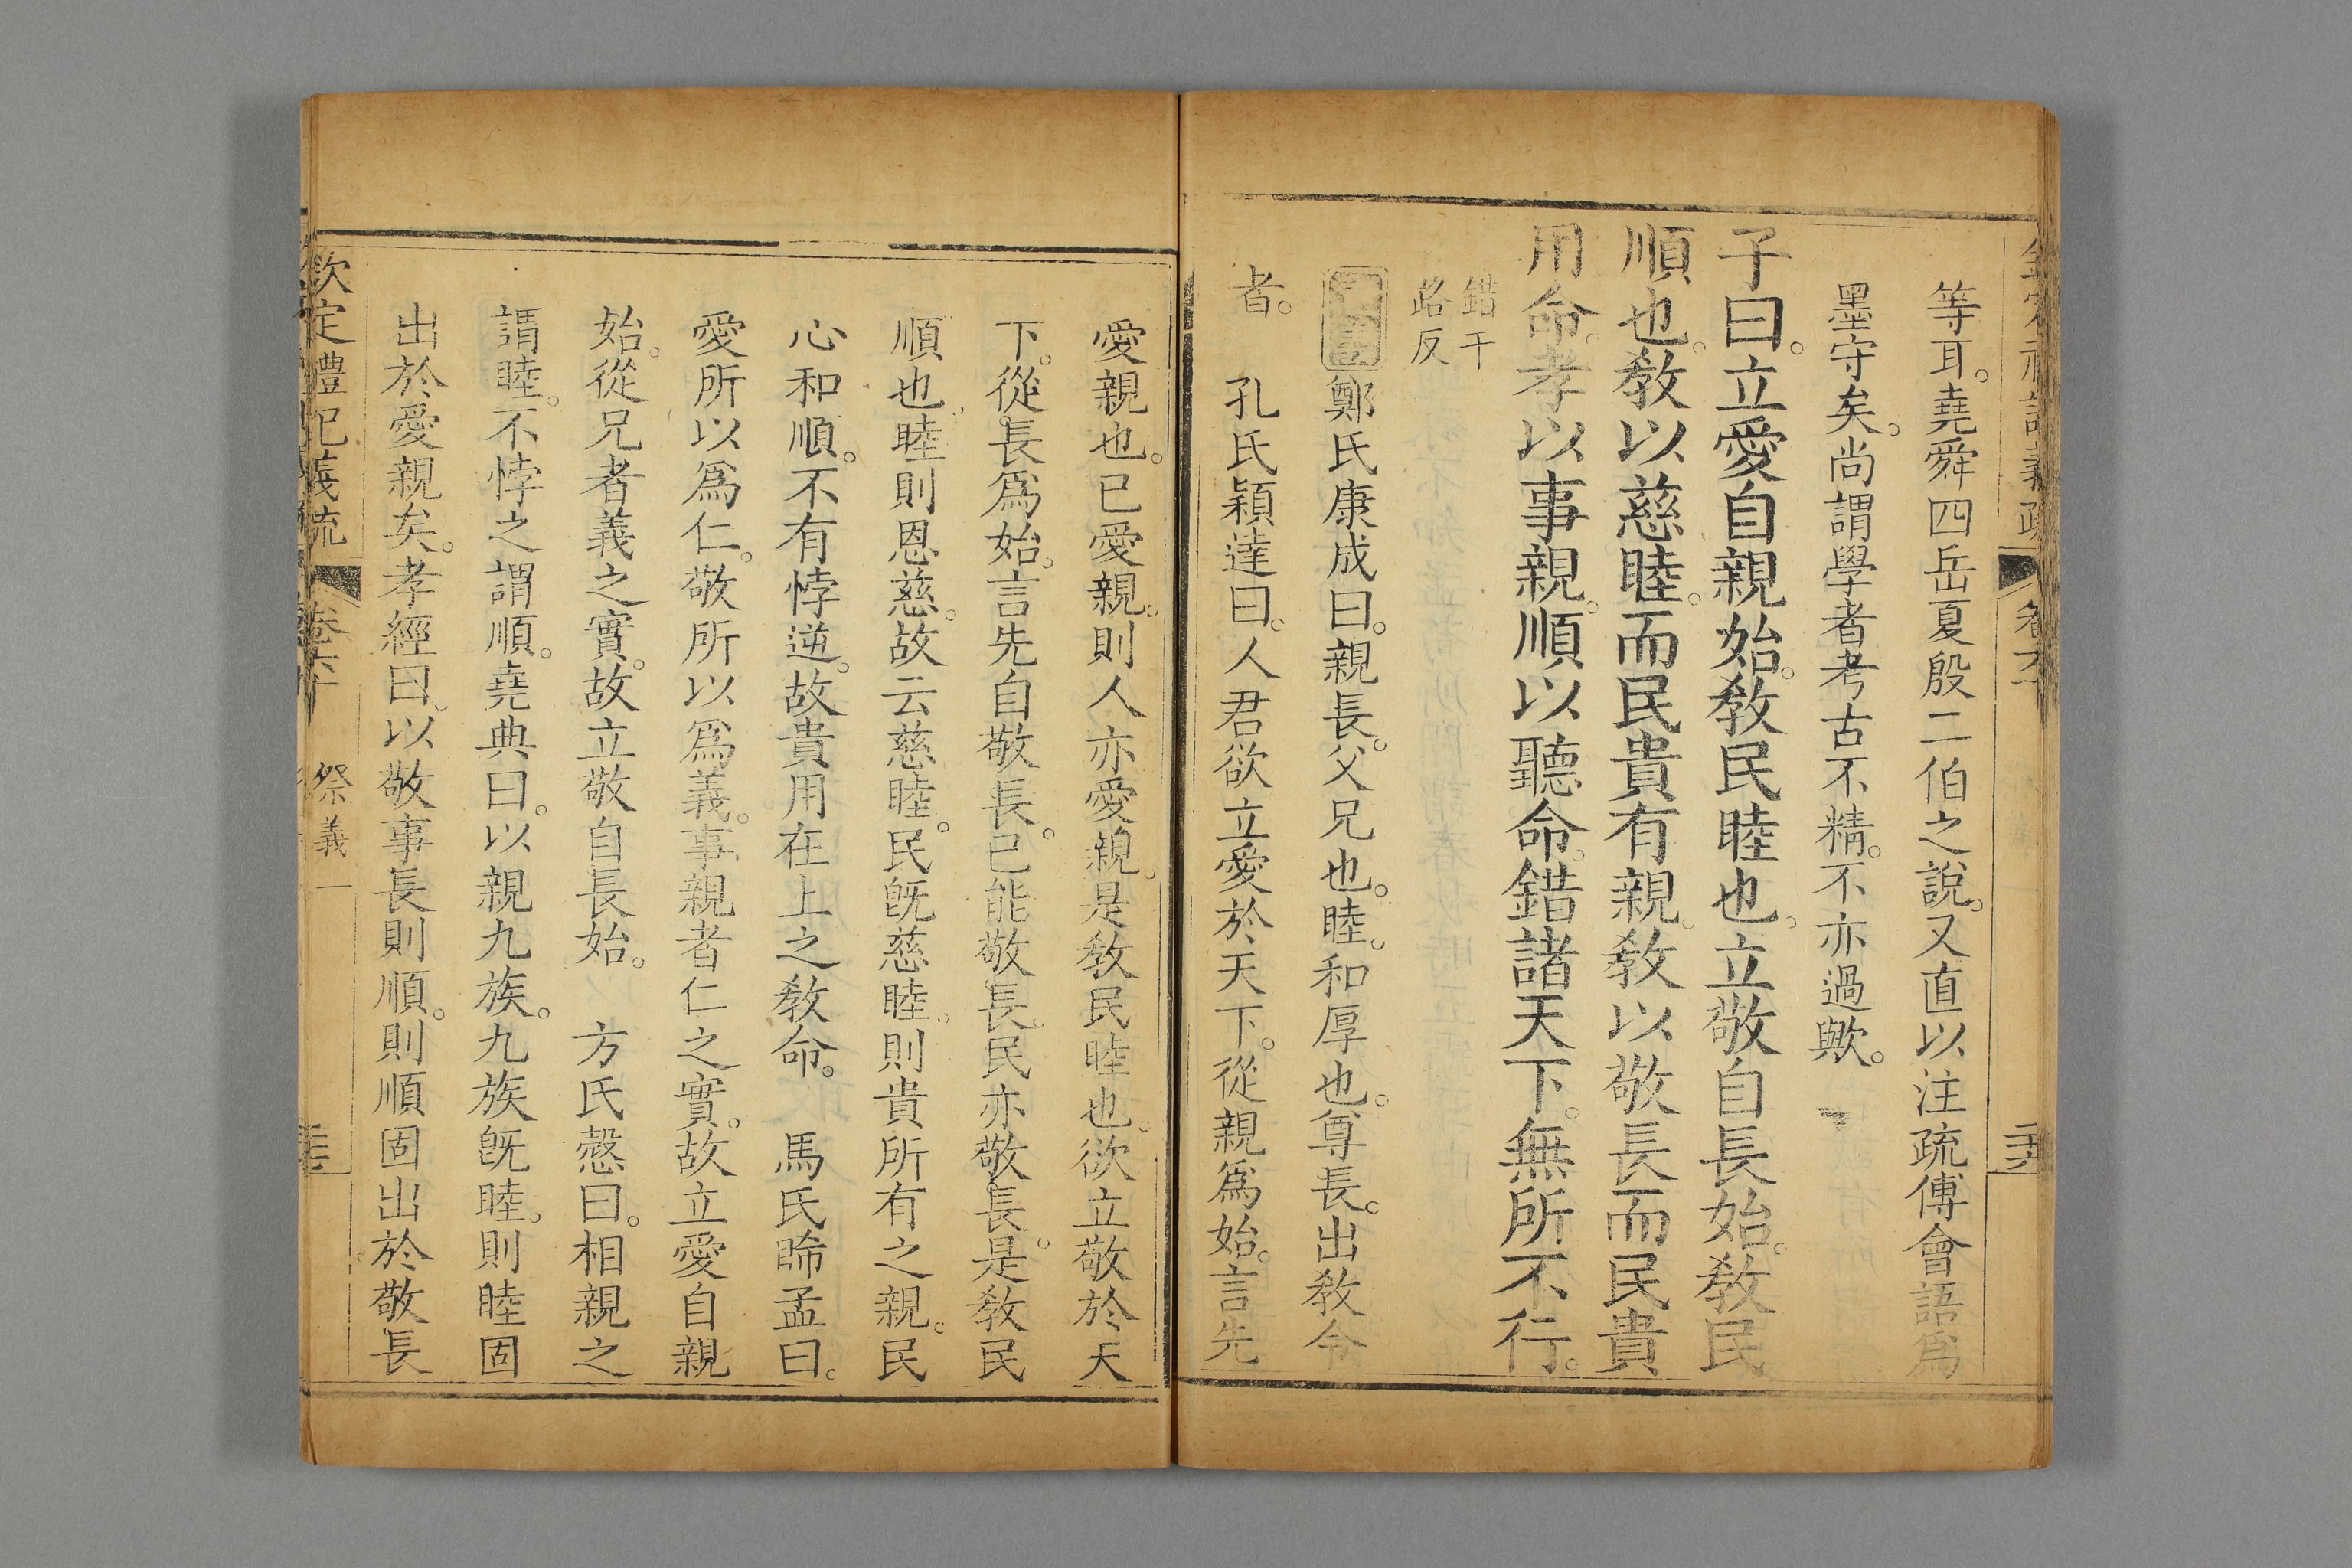 等耳。堯舜四岳夏殷二伯之說。又直以注疏傅會語爲
墨守矣。尚謂學者考古不精。不亦過歟。
子曰。立愛自親始。敎民睦也。立敬自長始。敎民
順也。敎以慈睦。而民貴有親。敎以敬長。而民貴
用命。孝以事親。順以聽命。錯諸天下。無所不行。
錯千
路反
鄭氏康成曰。親長。父兄也。睦。和厚也。尊長。出敎令
者。 孔氏穎達曰。人君欲立愛於天下。從親爲始。言先
愛親也。已愛親。則人亦愛親。是敎民睦也。欲立敬於天
下。從長爲始。言先自敬長。已能敬長。民亦敬長。是敎民
順也。睦則恩慈。故云慈睦。民旣慈睦。則貴所有之親。民
心和順。不有悖逆。故貴用在上之敎命。 馬氏晞孟曰。
愛所以爲仁。敬所以爲義。事親者仁之實。故立愛自親
始。從兄者義之實。故立敬自長始。 方氏慤曰。相親之
謂睦。不悖之謂順。堯典曰。以親九族。九族旣睦。則睦固
出於愛親矣。孝經曰。以敬事長則順。則順固出於敬長
欽定禮記義疏
卷六
祭義一